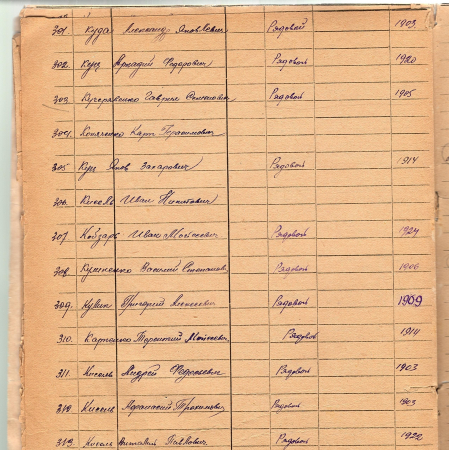 301 Куца Александр Яковлевич Рядовой 1903
302. Куц Аркадий Федорович Рядовой 1920
303. Гаврил Семенович Рядовой 1905
304. Карп Герасимович
305. Кург Яков Захарович Рядовой 1914
306. Кисель Иван Никитович
307. Койзарь Иван Моисеевич Рядовой 1924
308. Кушненко Василий Степанов Рядовой 1906
309. Кулик Григорий Алексеевич Рядовой 1909
310. Карпенко Терентий Моисеевич Рядовой 1914
311. Кисель Андрей Федосеевич Рядовой 1903
312 Кисель Афанасий Трохимович Рядовой 1903
313 Кисель Виталий Павлович Рядовой 1922